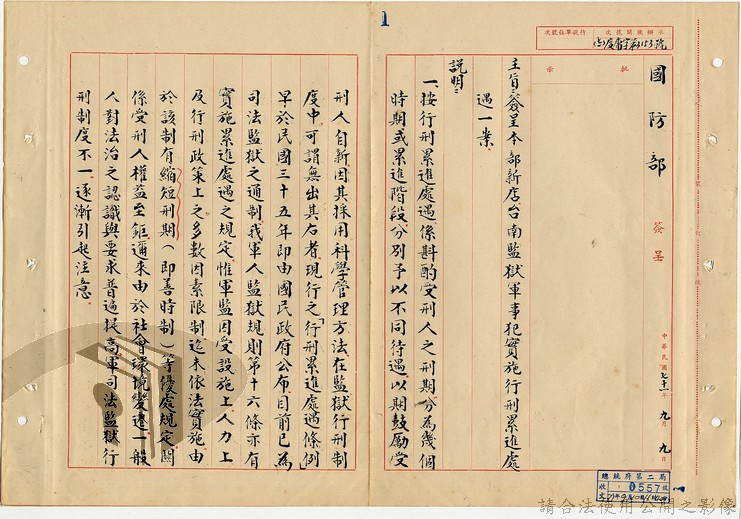 1
次號往單啟待
次號關機辦承
153號
示
批
國防部
簽呈
中華民國七十一年九月九日
主旨：簽呈本部新店、台南監獄軍事犯實施行刑累進處
遇一案。
說明：
一、按行刑累進處遇係斟酌受刑人之刑期，分為幾個
時期或累進階段，分別予以不同待遇，以期鼓勵受
刑人自新，因其採用科學管理方法，在監獄行刑制
度中，可謂無出其右者，現行之「行刑累進處遇條例」
早於民國三十五年即由國民政府公布，目前已為
司法監獄之通制，我軍人監獄規則第十六條亦有
實施累進處遇之規定，惟軍監因受設施上、人力上
及行刑政策上之多數因素限制，迄未依法實施，由
於該制有縮短刑期（即善時制）等優處規定，關
係受刑人權益至鉅，邇來由於社會環境變遷，一般
人對法治之認識與要求普遍提高，軍司法監獄行
刑制度不一，逐漸引起注意。
總統府第二局
收
文
0557號
請合法使用公開之影像